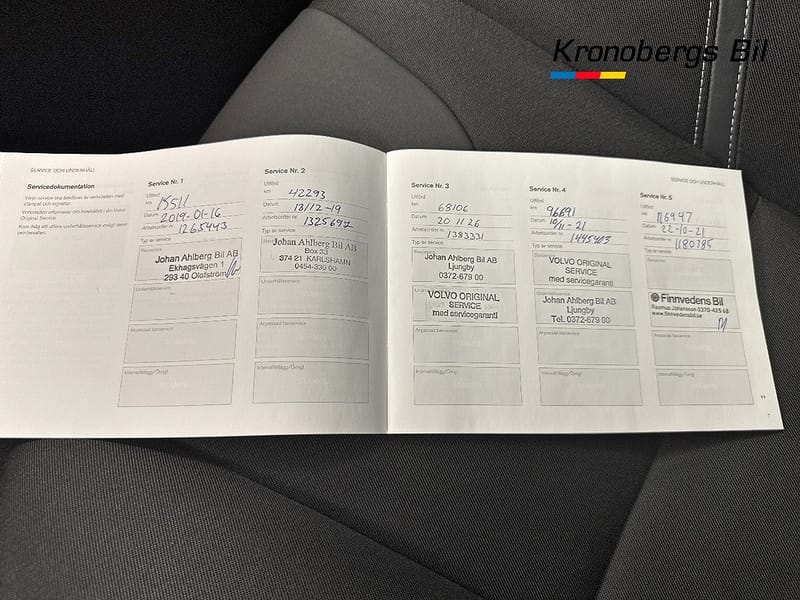 Kronobergs Bil
SERVICE OCH UNDERHÅLL
Servicedokumentation
Varje service ska bekräftas av verkstaden med
stämpel och signatur.
Original Service.
Service Nr. 1
Utförd
km 15511
Datum 2019-01-16
Arbetsorder nr. 1265443
Typ av service
Johan Ahlberg Bil AB
Ekhagsvägen 1
293 40 Olofström
Anpassad basservice
Intervalltillägg/Övrigt
Service Nr. 2
Utförd
km 42293
Datum 18/12-19
Arbetsorder nr. 1325697
Typ av service
Johan Ahlberg Bil AB
Box 33
374 21 KARLSHAMN
0454-330 00
Underhållsservice
Anpassad basservice
Intervalltillägg/Övrigt
SERVICE OCH UNDERHÅLL
Service Nr. 3
Utförd
km 68106
Datum 20 11 26
Arbetsorder nr. 1383331
Typ av service
Johan Ahlberg Bil AB
Ljungby
0372-679 00
VOLVO ORIGINAL
SERVICE
med servicegaranti
Anpassad basservice
Intervalltillägg/Övrigt
Service Nr. 4
Utförd
km 96691
Datum 10/11-21
Arbetsorder nr. 1445403
Typ av service
VOLVO ORIGINAL
SERVICE
med servicegaranti
Johan Ahlberg Bil AB
Ljungby
Tel. 0372-679 00
Anpassad basservice
Intervalltillägg/Övrigt
Service Nr. 5
Utförd
km 116947
Datum 22-10-21
Arbetsorder nr. 1180785
Typ av service
Finnvedens Bil
Rasmus Johansson 0370-425 68
www.finnvedensbil.se
Anpassad basservice
Intervalltillägg/Övrigt